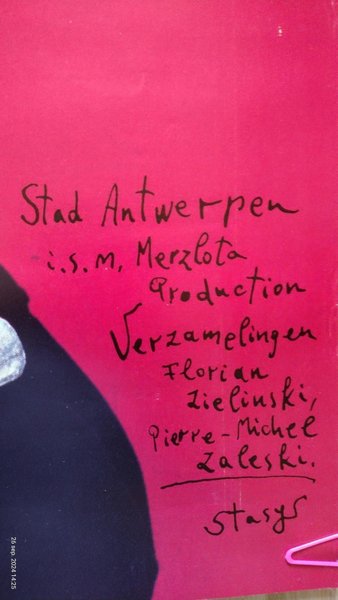 Stad Antwerpen
i.s.m. Merzlota
Production
Verzamelingen
Florian
Zielinski,
Pierre-Michel
Zaleski.
Stasys
26 sep. 2024 14:25